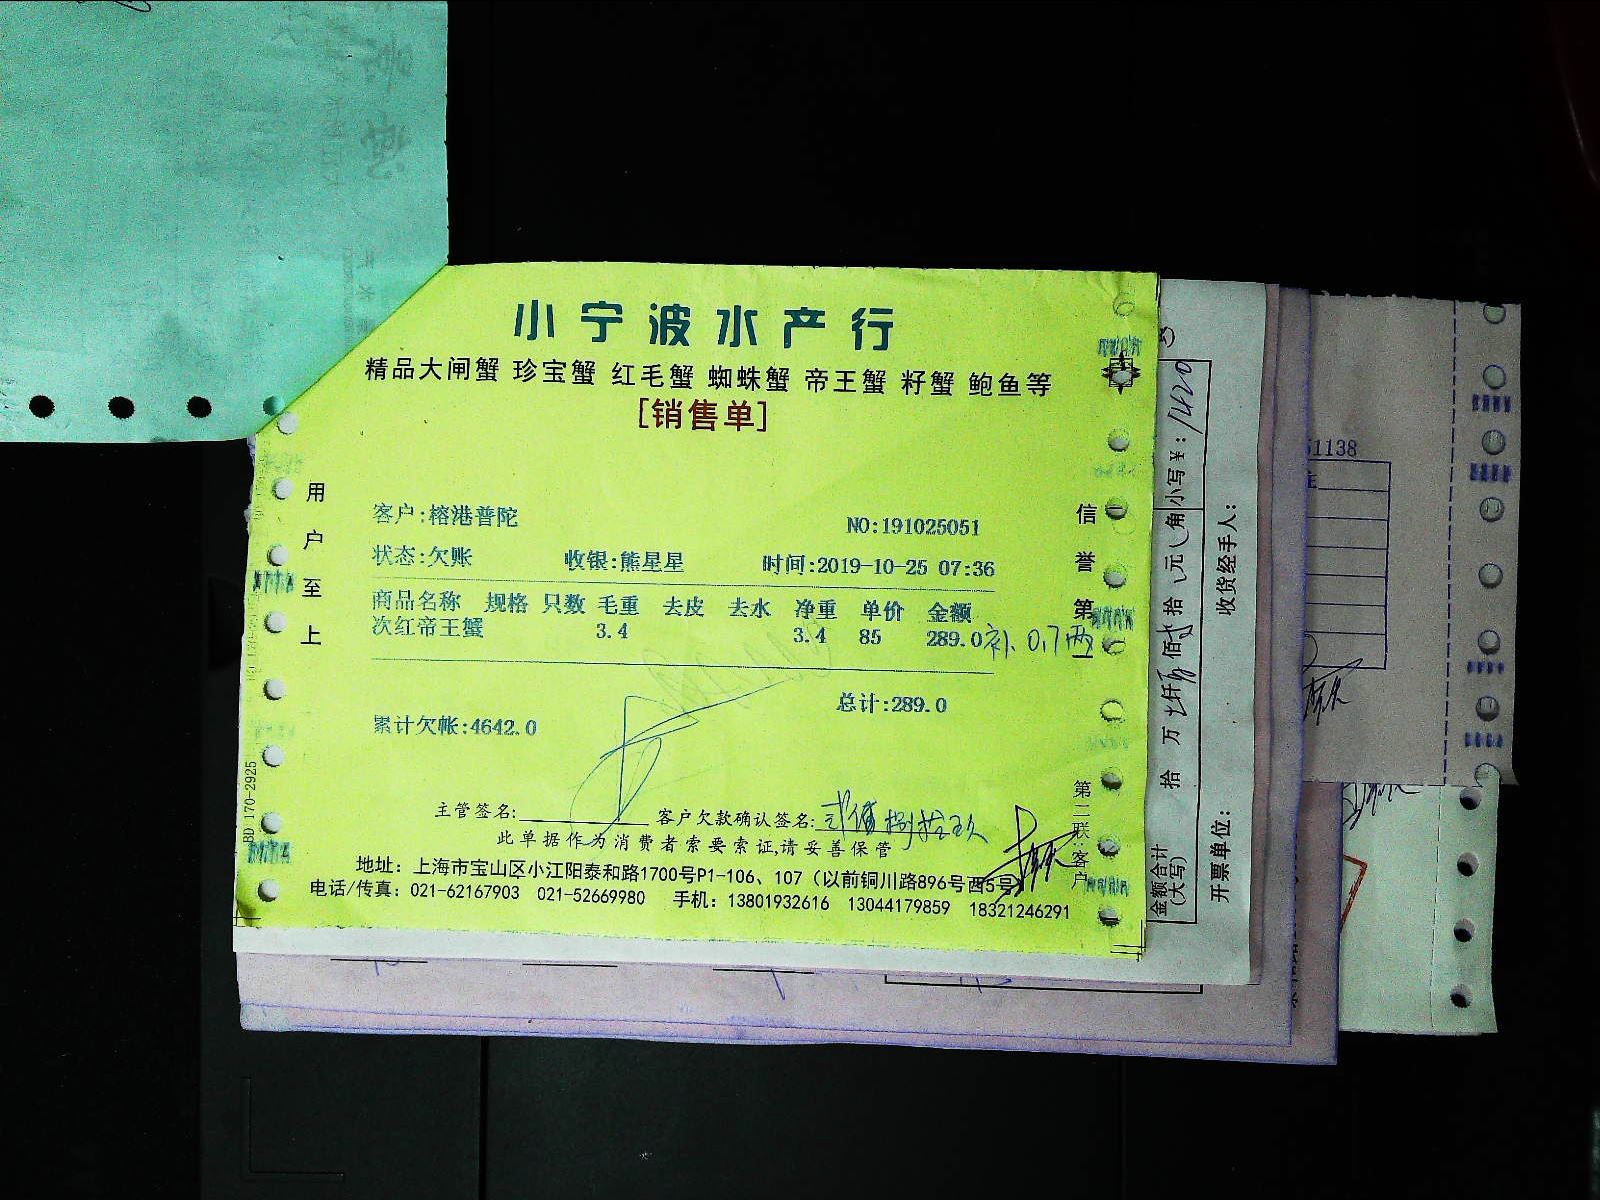 小宁波水产行
精品大闸蟹 珍宝蟹 红毛蟹 蜘蛛蟹 帝王蟹 籽蟹 鲍鱼等
[销售单]
用户至上
信誉第一
客户:榕港普陀
NO:191025051
状态:欠账 收银:熊星星 时间:2019-10-25 07:36
商品名称 规格 只数 毛重 去皮 去水 净重 单价 金额
次红帝王蟹 3.4 3.4 85 289.0 补 0.7两
总计:289.0
累计欠帐:4642.0
主管签名: 客户欠款确认签名: 贰佰捌拾玖
此单据作为消费者索要索证,请妥善保管
地址: 上海市宝山区小江阳泰和路1700号P1-106、107 (以前铜川路896号西5号)
电话/传真: 021-62167903 021-52669980 手机: 13801932616 13044179859 18321246291
第二联:客户
BD 170-2925
金额合计(大写) 拾 万 仟 佰 拾 元 角 小写¥: 1420
开票单位: 收货经手人:
51138